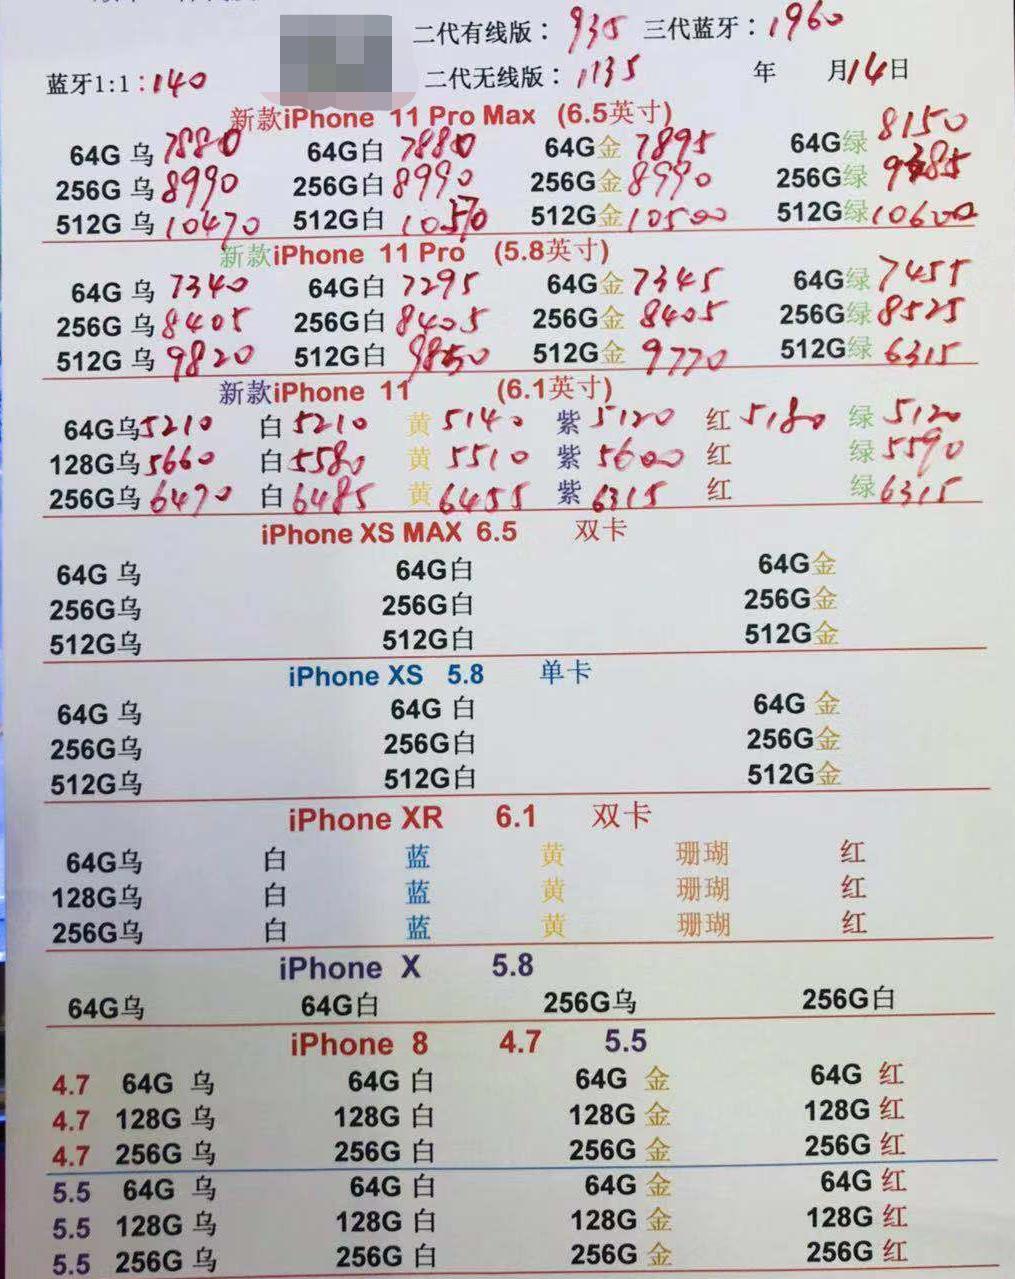 二代有线版：935 三代蓝牙：1960
蓝牙1:1：140 二代无线版：1135 年 月14日
新款iPhone 11 Pro Max (6.5英寸)
64G 乌 7880 64G白 7880 64G金 7895 64G绿 8150
256G 乌 8990 256G白 8990 256G金 8990 256G绿
512G 乌 10470 512G白 512G金 10500 512G绿 10600
新款iPhone 11 Pro (5.8英寸)
64G 乌 7340 64G白 7295 64G金 7345 64G绿 7455
256G 乌 8405 256G白 8405 256G金 8405 256G绿 8525
512G 乌 9820 512G白 512G金 9770 512G绿 6315
新款iPhone 11 (6.1英寸)
64G乌 5210 白 5210 黄 5140 紫 5120 红 5180 绿 5120
128G乌 5660 白 5580 黄 5510 紫 5600 红 绿 5590
256G乌 6470 白 6485 黄 6455 紫 6315 红 绿 6315
iPhone XS MAX 6.5 双卡
64G 乌 64G白 64G金
256G乌 256G白 256G金
512G乌 512G白 512G金
iPhone XS 5.8 单卡
64G 乌 64G 白 64G 金
256G乌 256G白 256G金
512G乌 512G白 512G金
iPhone XR 6.1 双卡
64G乌 白 蓝 黄 珊瑚 红
128G乌 白 蓝 黄 珊瑚 红
256G乌 白 蓝 黄 珊瑚 红
iPhone X 5.8
64G乌 64G白 256G乌 256G白
iPhone 8 4.7 5.5
4.7 64G 乌 64G 白 64G 金 64G 红
4.7 128G 乌 128G 白 128G 金 128G 红
4.7 256G 乌 256G 白 256G 金 256G 红
5.5 64G 乌 64G 白 64G 金 64G 红
5.5 128G 乌 128G 白 128G 金 128G 红
5.5 256G 乌 256G 白 256G 金 256G 红